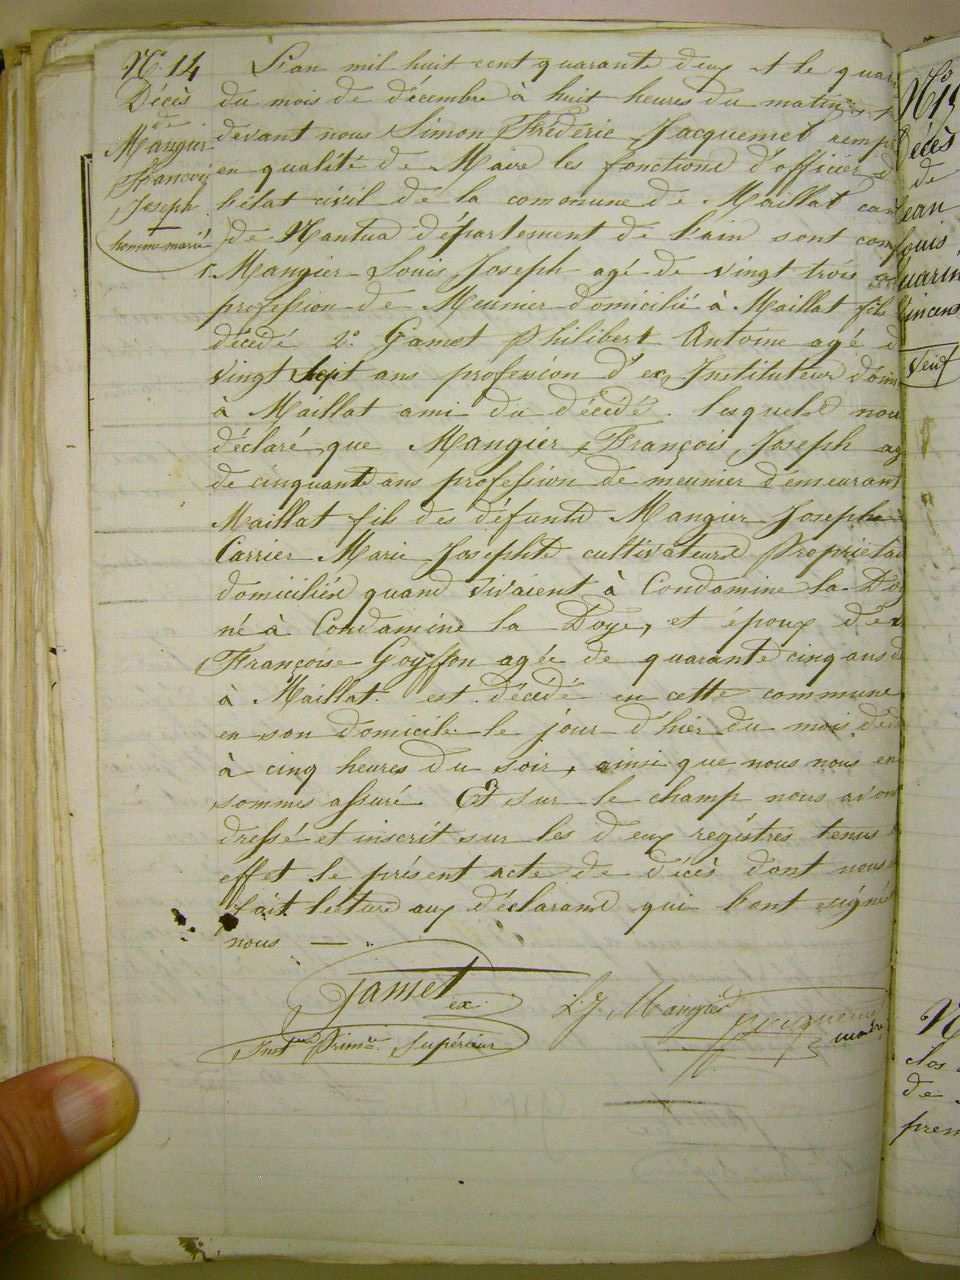 N° 14
Décès
de
Mangier
François
Joseph
homme marié
L'an mil huit cent quarante deux et le quat
du mois de décembre à huit heures du matin
devant nous Simon Frédéric Jacquemet remp
en qualité de Maire les fonctions d'officier d
l'état civil de la commune de Maillat can
de Nantua département de l'ain sont comp
1° Mangier Louis Joseph agé de vingt trois a
profession de Meunier domicilié à Maillat fils
décédé 2° Gamet Philibert Antoine agé d
vingt sept ans profession d'ex Instituteur domi
à Maillat ami du décédé. lesquels nou
déclaré que Mangier François Joseph ag
de cinquante ans profession de meunier demeurant
Maillat fils des défunts Mangier Joseph
Carrier Marie Josephte cultivateurs Proprietai
domiciliés quand vivaient à Condamine la Doy
né à Condamine la Doye, et époux de
Françoise Goyffon agée de quarante cinq ans d
à Maillat. est décédé en cette commune
en son domicile le jour d'hier du mois de d
à cinq heures du soir, ainsi que nous nous en
sommes assuré. Et sur le champ nous avons
dressé et inscrit sur les deux registres tenus
effet le présent acte de décès dont nous
fait lecture aux déclarans qui l'ont signé
nous
Gamet
ex
Inst Prim Supérieur
L. J. Mangier
Jacquemet
maire
N° 15
Décès
de
Jean
Louis
Vincent
Veuf
N
clos
de
prem